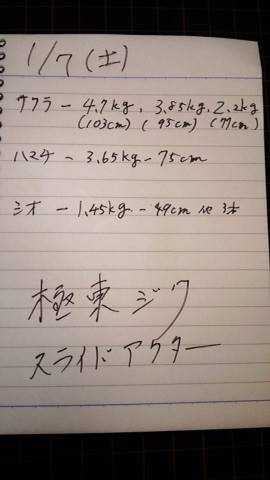 1/7(土)
サワラ - 4.7kg, 3.85kg, 2.2kg
(103cm) (95cm) (77cm)
ハマチ - 3.65kg - 75cm
シオ - 1.45kg - 49cm ve 3本
極東ジグ
スライドアクター